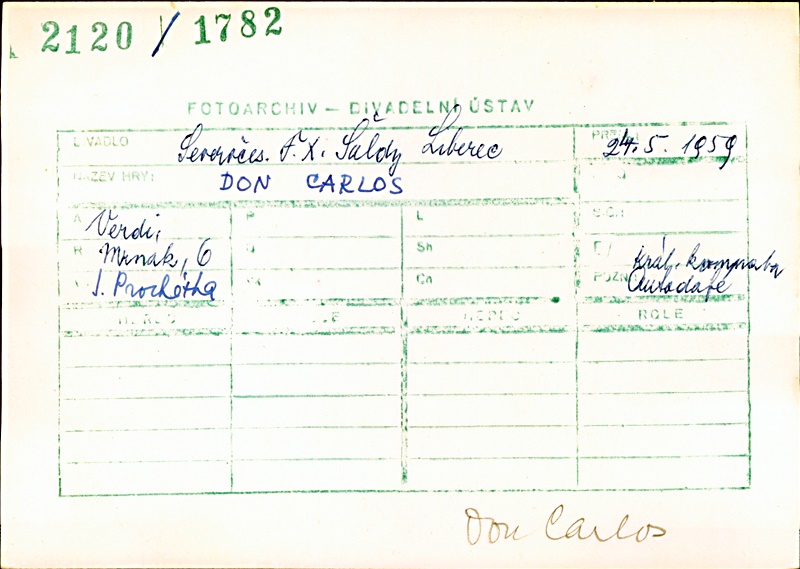 2120 / 1782
FOTOARCHIV – DIVADELNÍ ÚSTAV
DIVADLO Severočes. F. X. Šaldy Liberec
24. 5. 1959
NÁZEV HRY: DON CARLOS
A Verdi,
P
L
R Mrnak, O
Sh
J. Procházka
Ch
Král. komnata
POZN Autodafe
HEREC
ROLE
HEREC
ROLE
Don Carlos